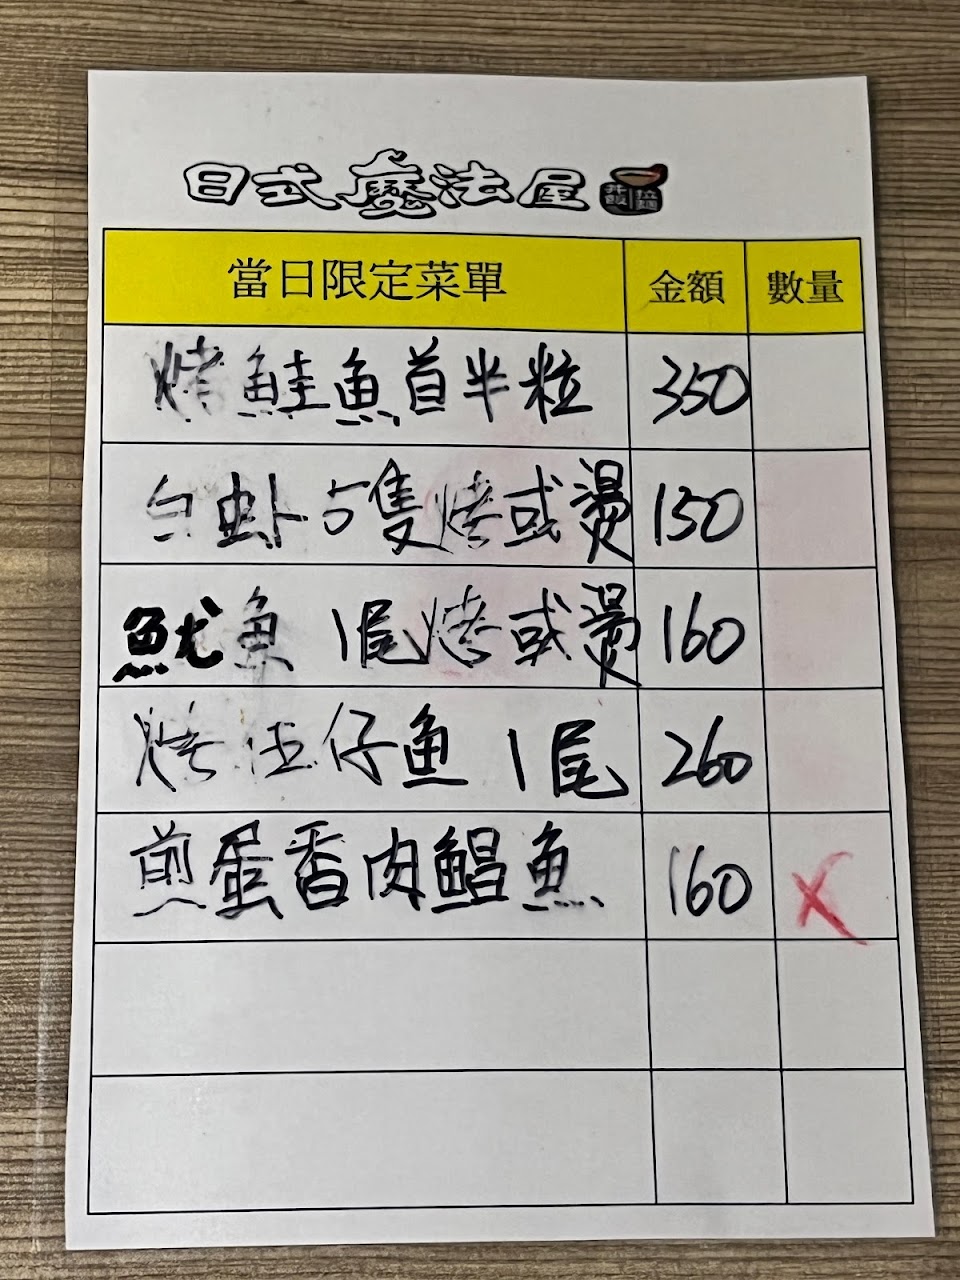 日式魔法屋 丼飯 拉麵
當日限定菜單 金額 數量
烤鮭魚首半粒 350
白虾5隻烤或燙 150
魷魚 1尾烤或燙 160
烤午仔魚 1尾 260
煎蛋香肉鯧魚 160 X